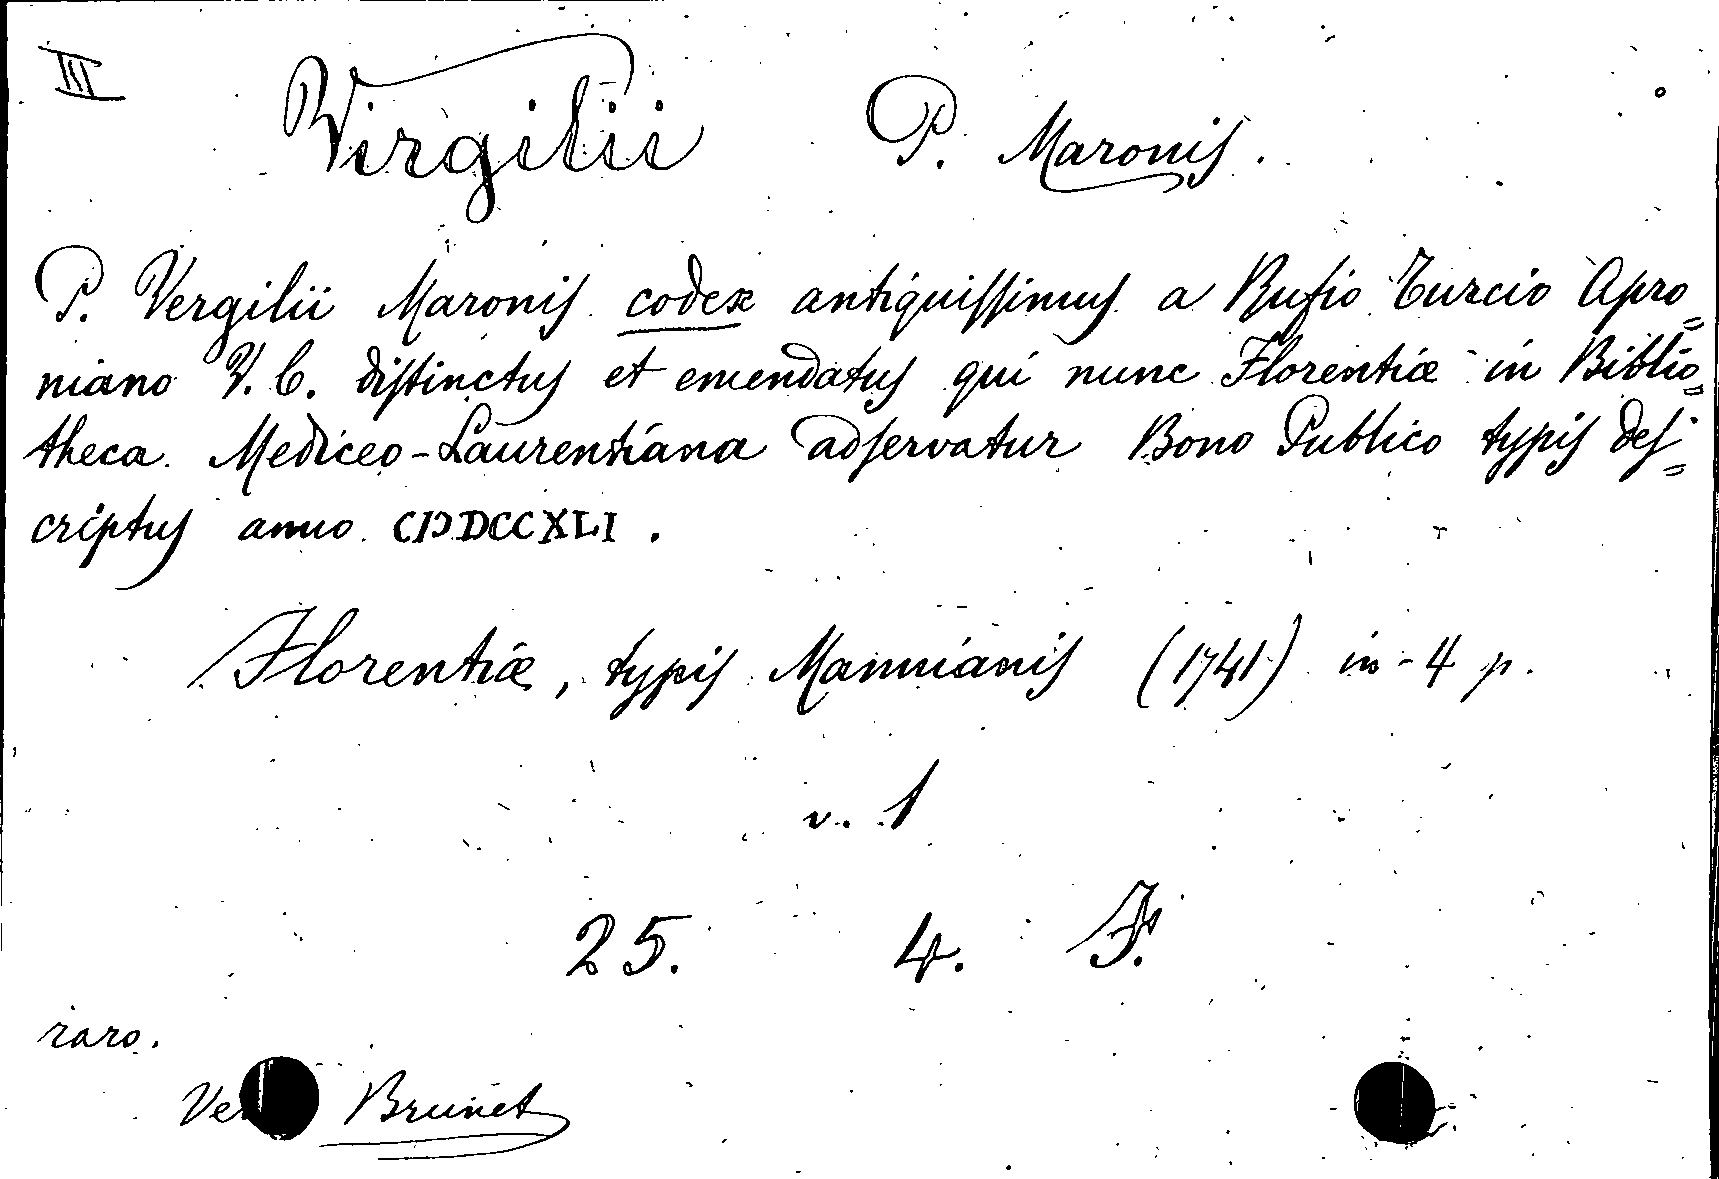 III
Virgilii P. Maronis.
P. Vergilii Maronis codex antiquissimus a Rufio Turcio Apro=
niano V. C. distinctus et emendatus qui nunc Florentiæ in Biblio=
theca Mediceo-Laurentiana adservatur Bono Publico typis des=
criptus anno CIƆDCCXLI.
Florentiæ, typis Mannianis (1741) in-4 p.
v. 1
25. 4. F.
raro.
Brunet